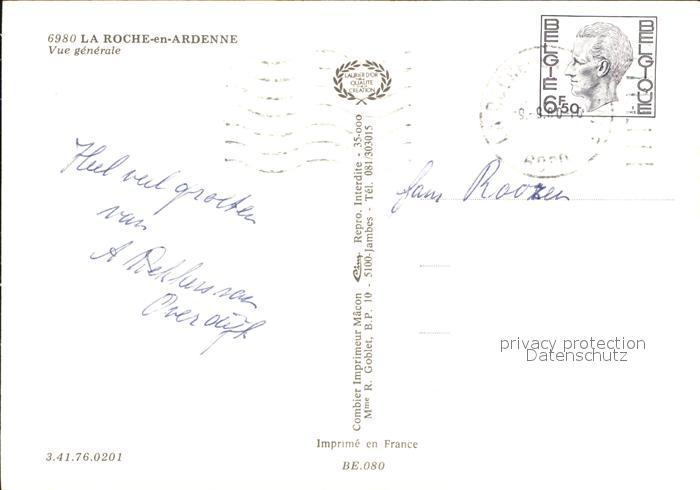 6980 LA ROCHE-en-ARDENNE
Vue générale
LAURIER D'OR
DE LA
QUALITE
CREATION
BELGIE
BELGIQUE
6F50
Heel veel groeten
van
A Dekkers van
Overdijk
fam Roozen
Combier Imprimeur Mâcon Cim Repro. Interdite - 35-000
Mme R. Goblet, B.P. 10 - 5100-Jambes - Tél. 081/303015
privacy protection
Datenschutz
Imprimé en France
3.41.76.0201
BE.080